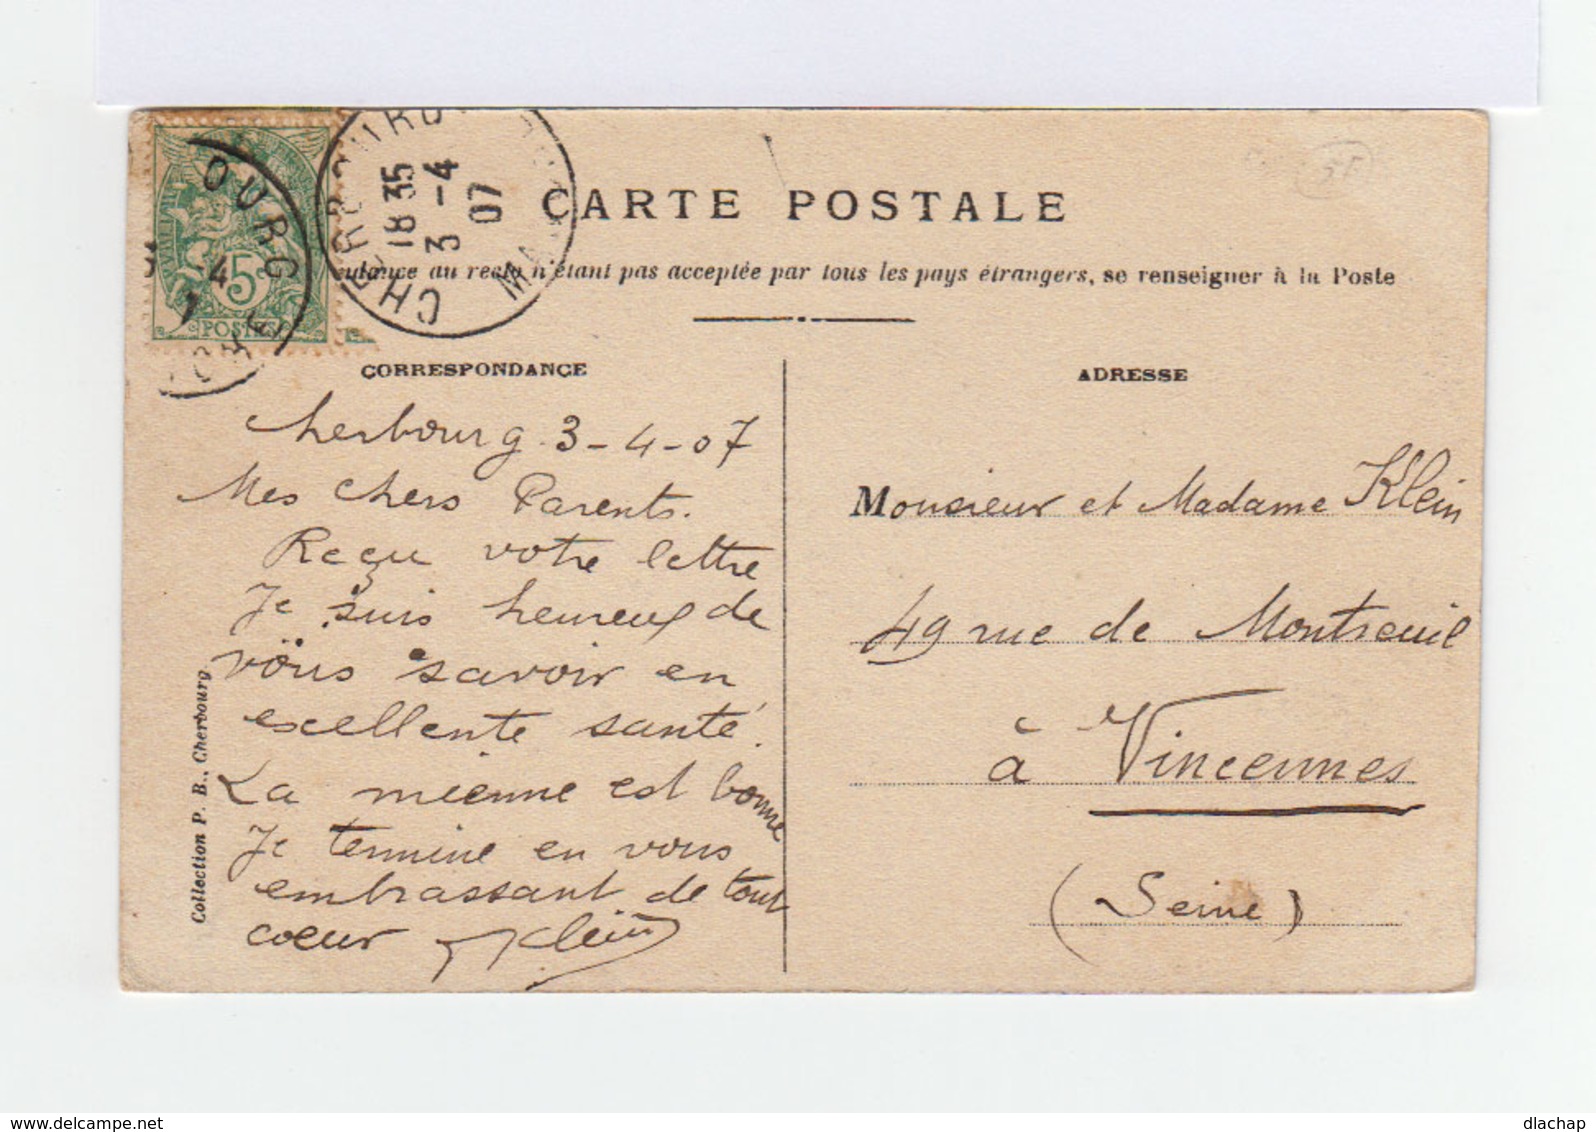 CARTE POSTALE
au recto n'étant pas acceptée par tous les pays étrangers, se renseigner à la Poste
5c
POSTES
OURG
-4
CHERBOURG
18 35
3 -4
07
CORRESPONDANCE
Cherbourg 3-4-07
Mes chers Parents.
Reçu votre lettre
Je suis heureux de
vous savoir en
excellente santé.
La mienne est bonne
Je termine en vous
embrassant de tout
coeur Klein
Collection P. B., Cherbourg
ADRESSE
Monsieur et Madame Klein
49 rue de Montreuil
à Vincennes
(Seine)
www.delcampe.net
dlachap